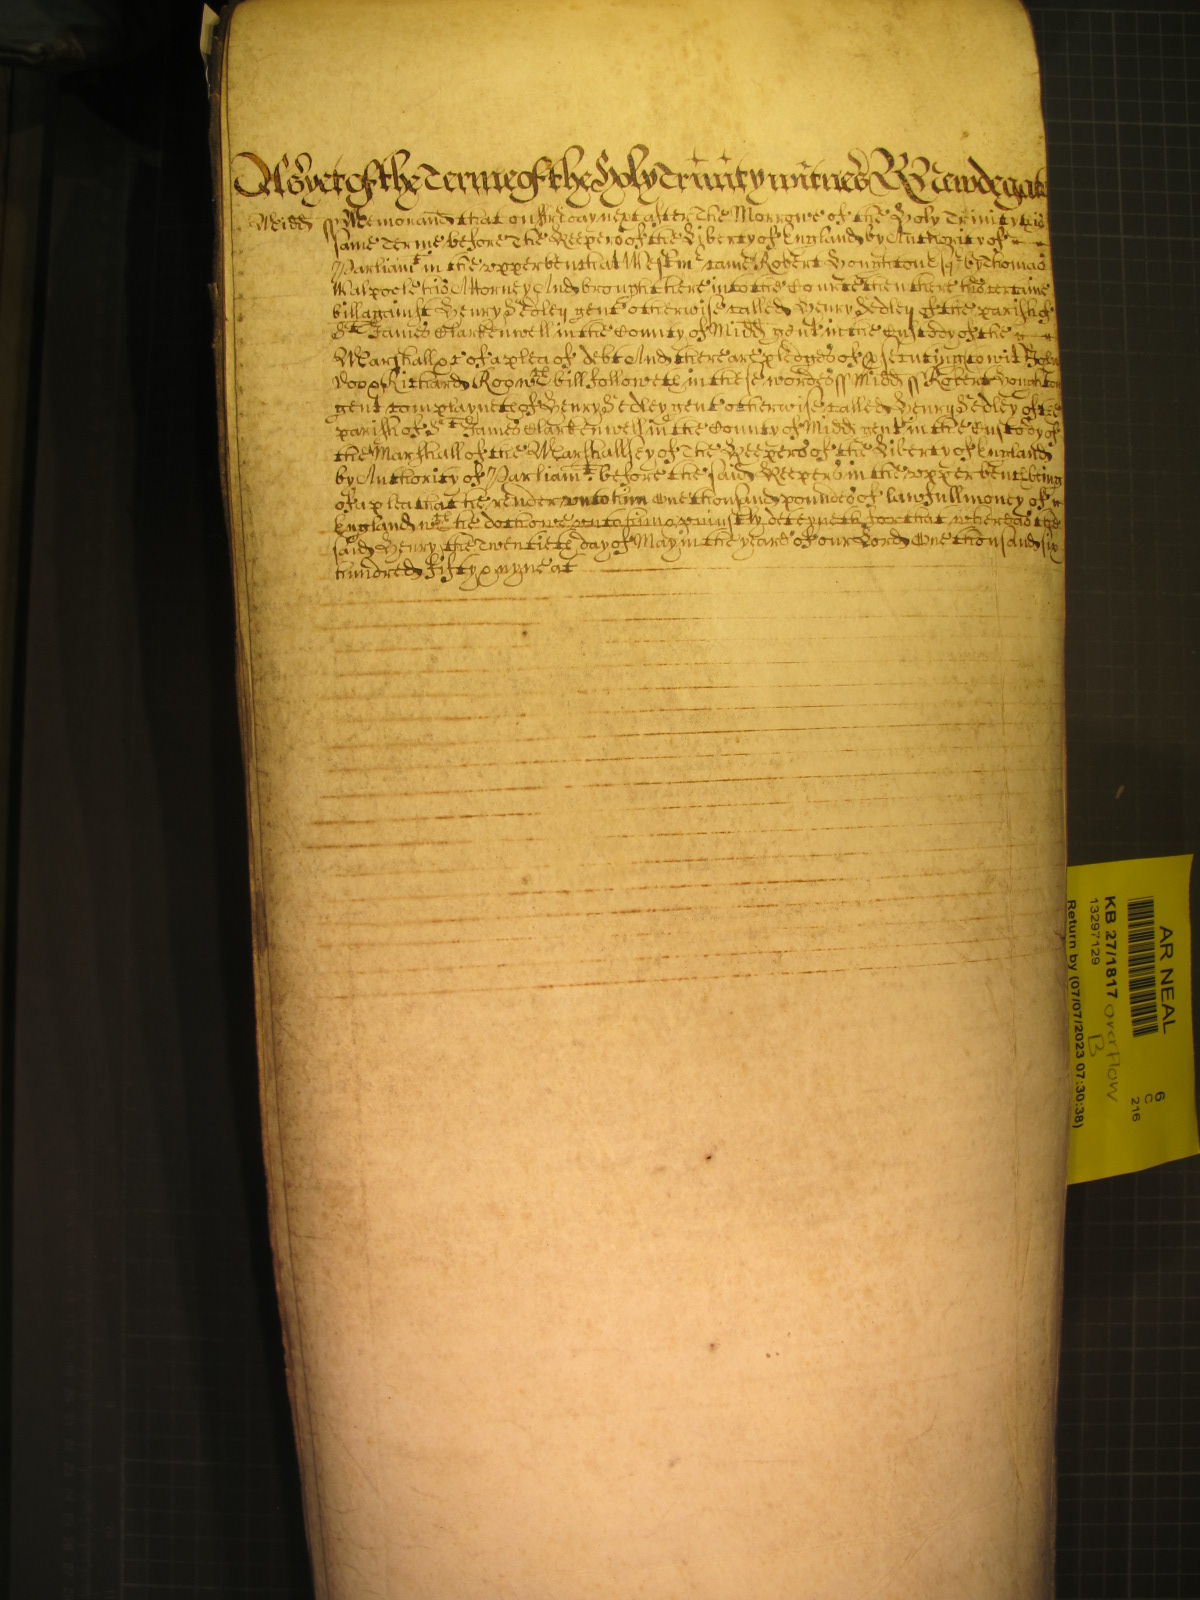 As yet of the Terme of the Holy Trinity witnes R Newdegate
Midd ss Memorand that on Friday next after The Morrowe of the Holy Trinity this
same Terme before The Keepers of the Liberty of England by Authority of
Parliamt in the upper bench at Westmr came Robert Houghton esqr by Thomas
Malpoole his Attorney And brought here into the Court then there his certaine
bill against Henry Sedley gent otherwise called Henry Sedley of the parish of
St James Clarkenwell in the County of Midd gent in the Custody of the
Marshall &c of a plea of debt And there are pledges of prosecuting to wit John
Doo & Richard Roo wch bill followeth in these words ss Midd ss Robert Houghton
gent complayneth of Henry Sedley gent otherwise called Henry Sedley of the
parish of St James Clarkenwell in the County of Midd gent in the Custody of
the Marshall of the Marshallsey of The Keepers of the Liberty of England
by Authority of Parliamt before the said Keepers in the upper bench being
of a plea that he render unto him One thousand pounds of lawfull money of
England wch he doth owe unto him & uniustly deteyneth for that whereas the
said Henry the Twentieth day of May in the yeare of our Lord One thousand six
hundred fifty & nyne at
AR NEAL
KB 27/1817 overflow
B
13297129
Return by (07/07/2023 07:30:38)
6
C
216